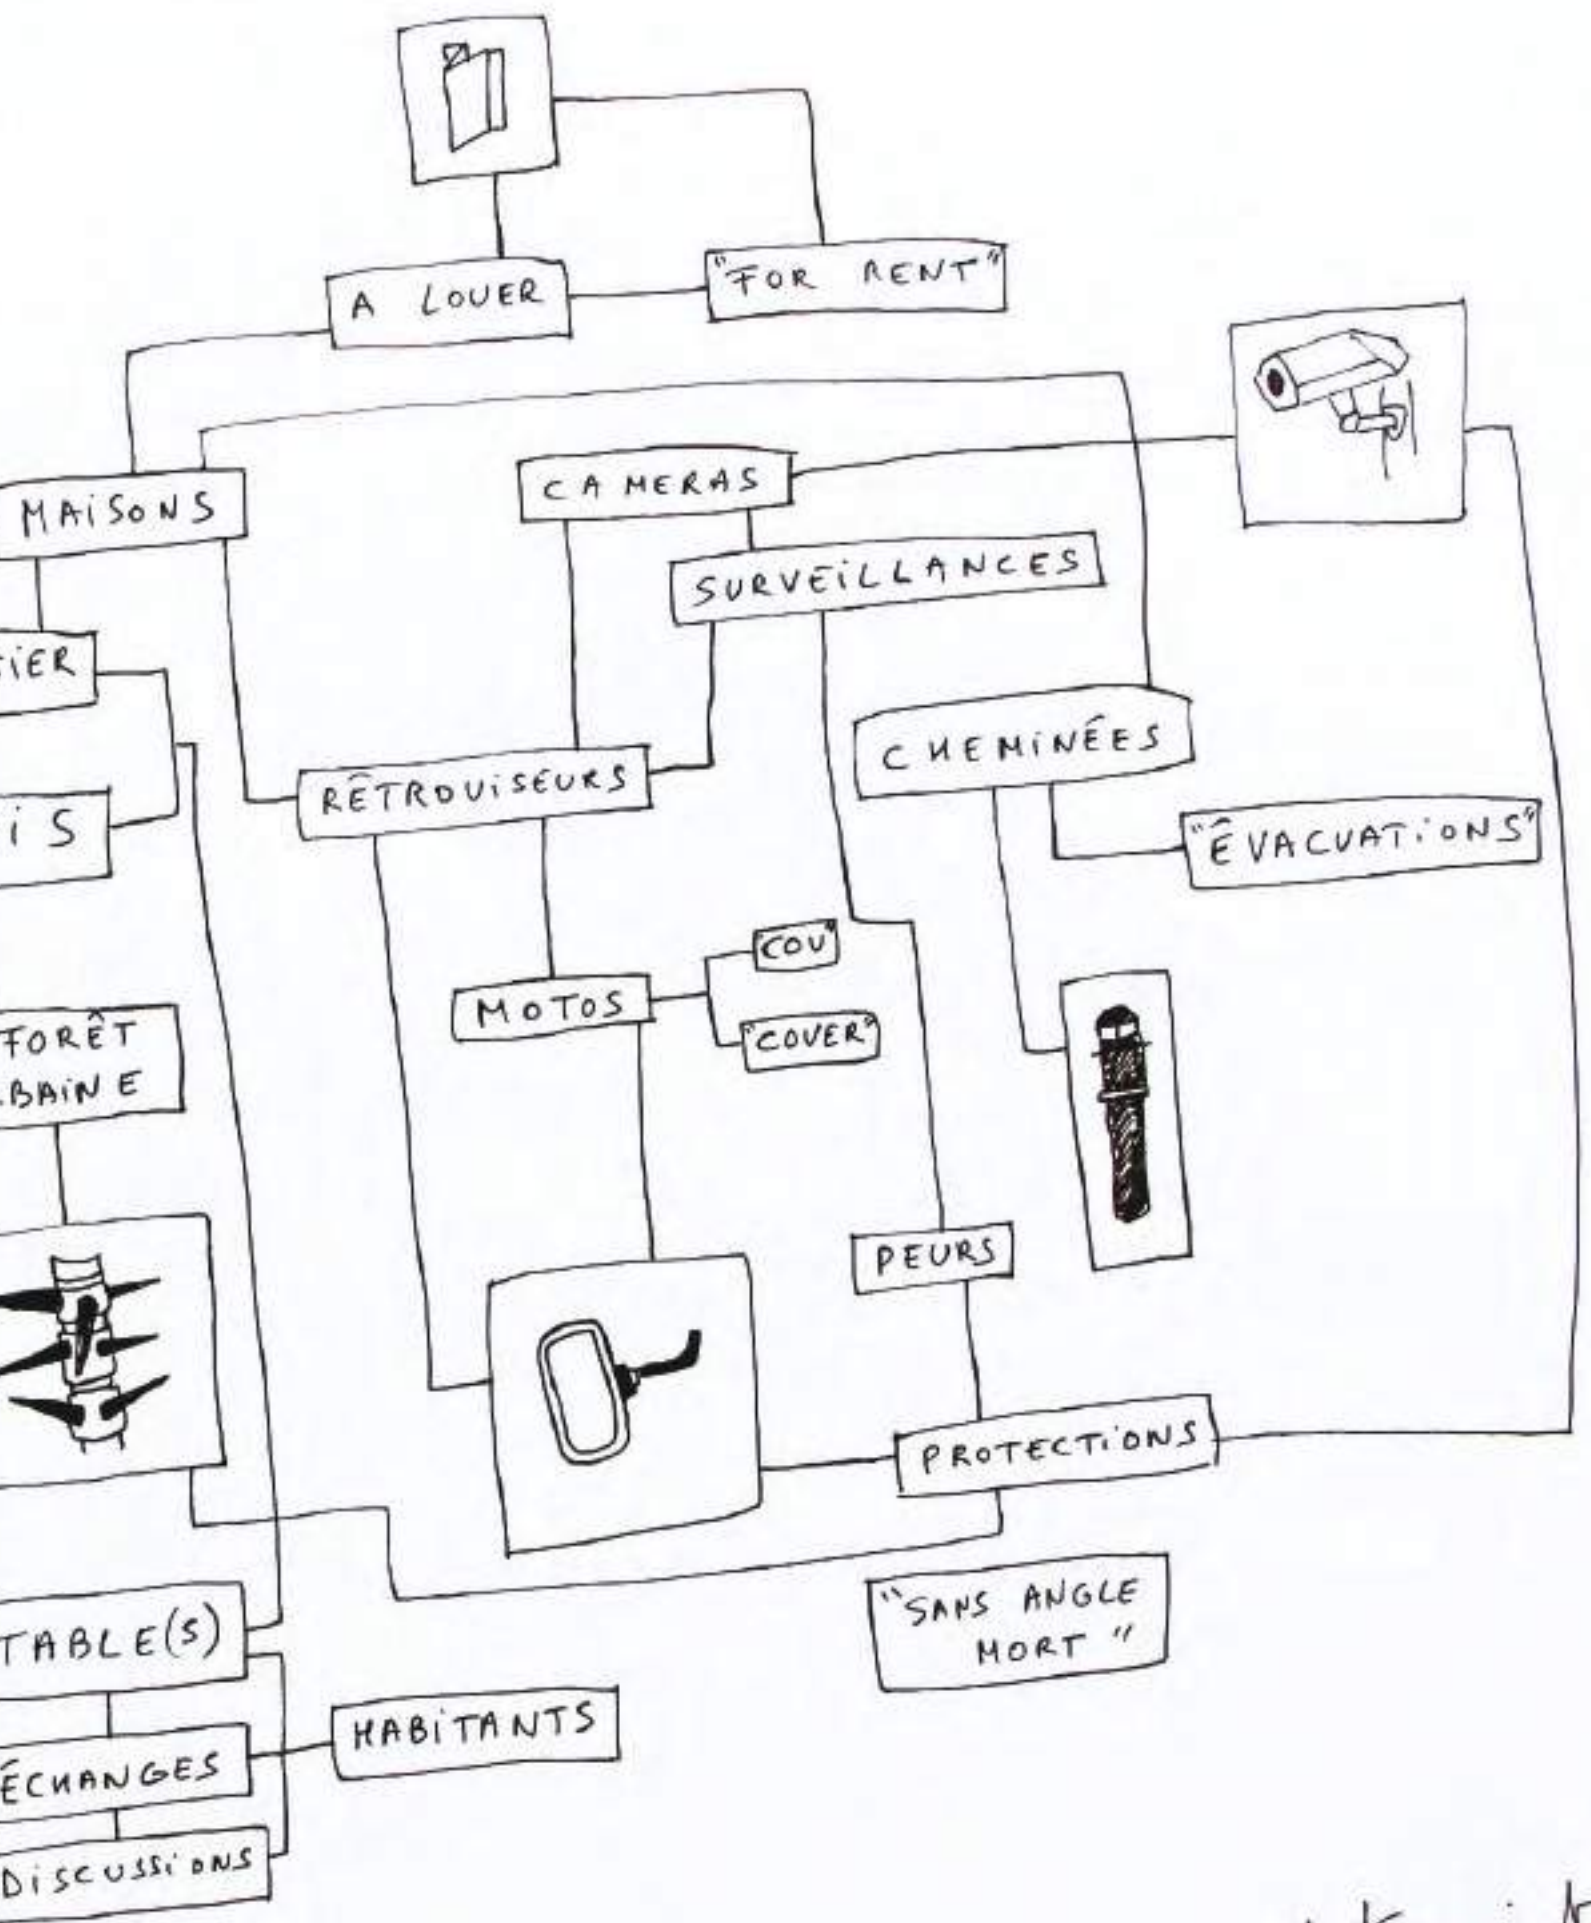 A LOUER
"FOR RENT"
MAiSONS
CAMERAS
SURVEiLLANCES
CHEMiNÉES
RÉTROViSEURS
"ÉVACUATiONS"
"COV"
MOTOS
"COVER"
FORÊT
PEURS
PROTECTiONS
"SANS ANGLE
MORT"
TABLE(S)
HABiTANTS
ÉCHANGES
DiSCUSSiONS